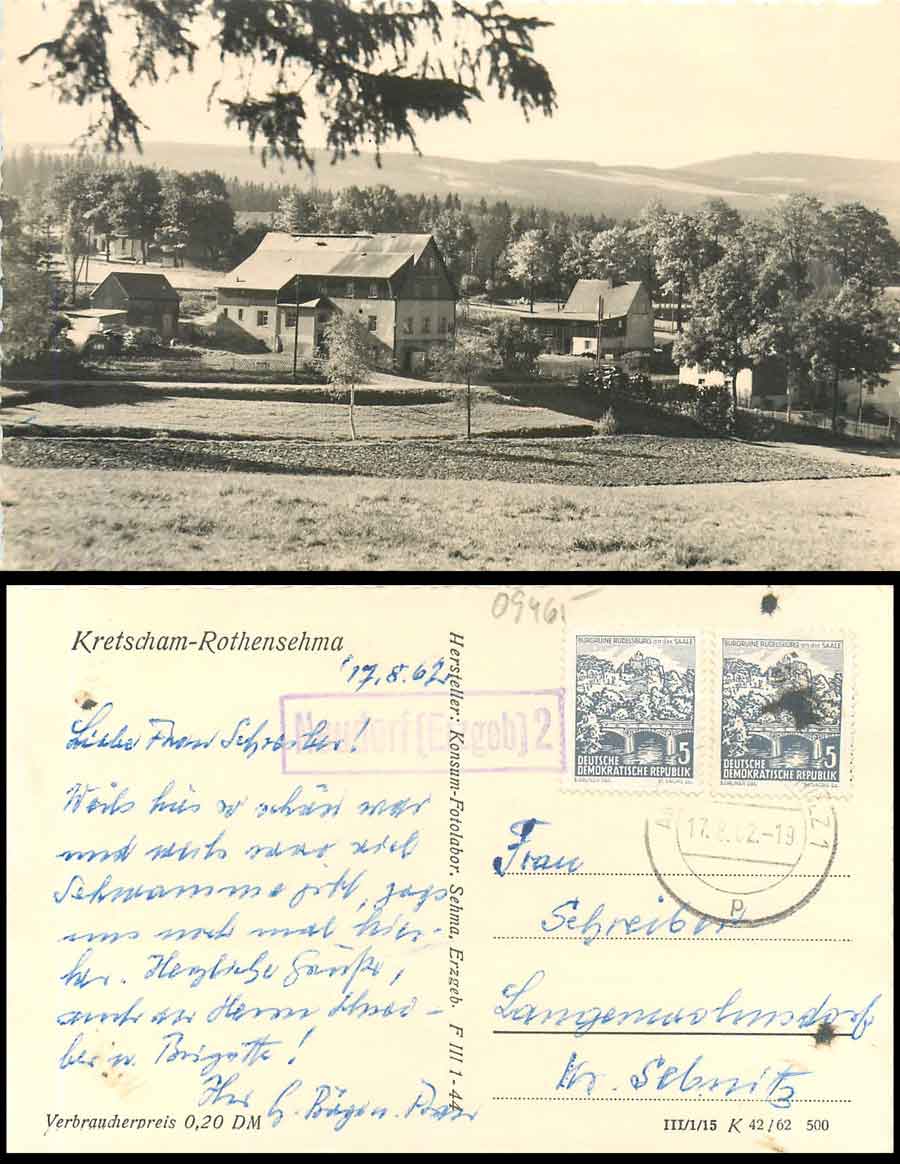 09465
Kretscham-Rothensehma
17.8.62
Neudorf (Erzgeb) 2
Liebe Frau Schreiber!
Weils hier so schön war
und auch
Schwamme gibt,
uns noch mal hier-
her. Herzliche Grüße,
auch an Herrn Schrei-
ber u. Brigitte!
Ihre
Verbraucherpreis 0,20 DM
Hersteller: Konsum-Fotolabor, Sehma, Erzgeb. F III 1-44
BURGRUINE RUDELSBURG an der SAALE
5
DEUTSCHE
DEMOKRATISCHE REPUBLIK
BURGRUINE RUDELSBURG an der SAALE
5
DEUTSCHE
DEMOKRATISCHE REPUBLIK
17.8.62.-19
Frau
Schreiber
Langenwolmsdorf
Kr. Sebnitz
III/1/15 K 42/62 500